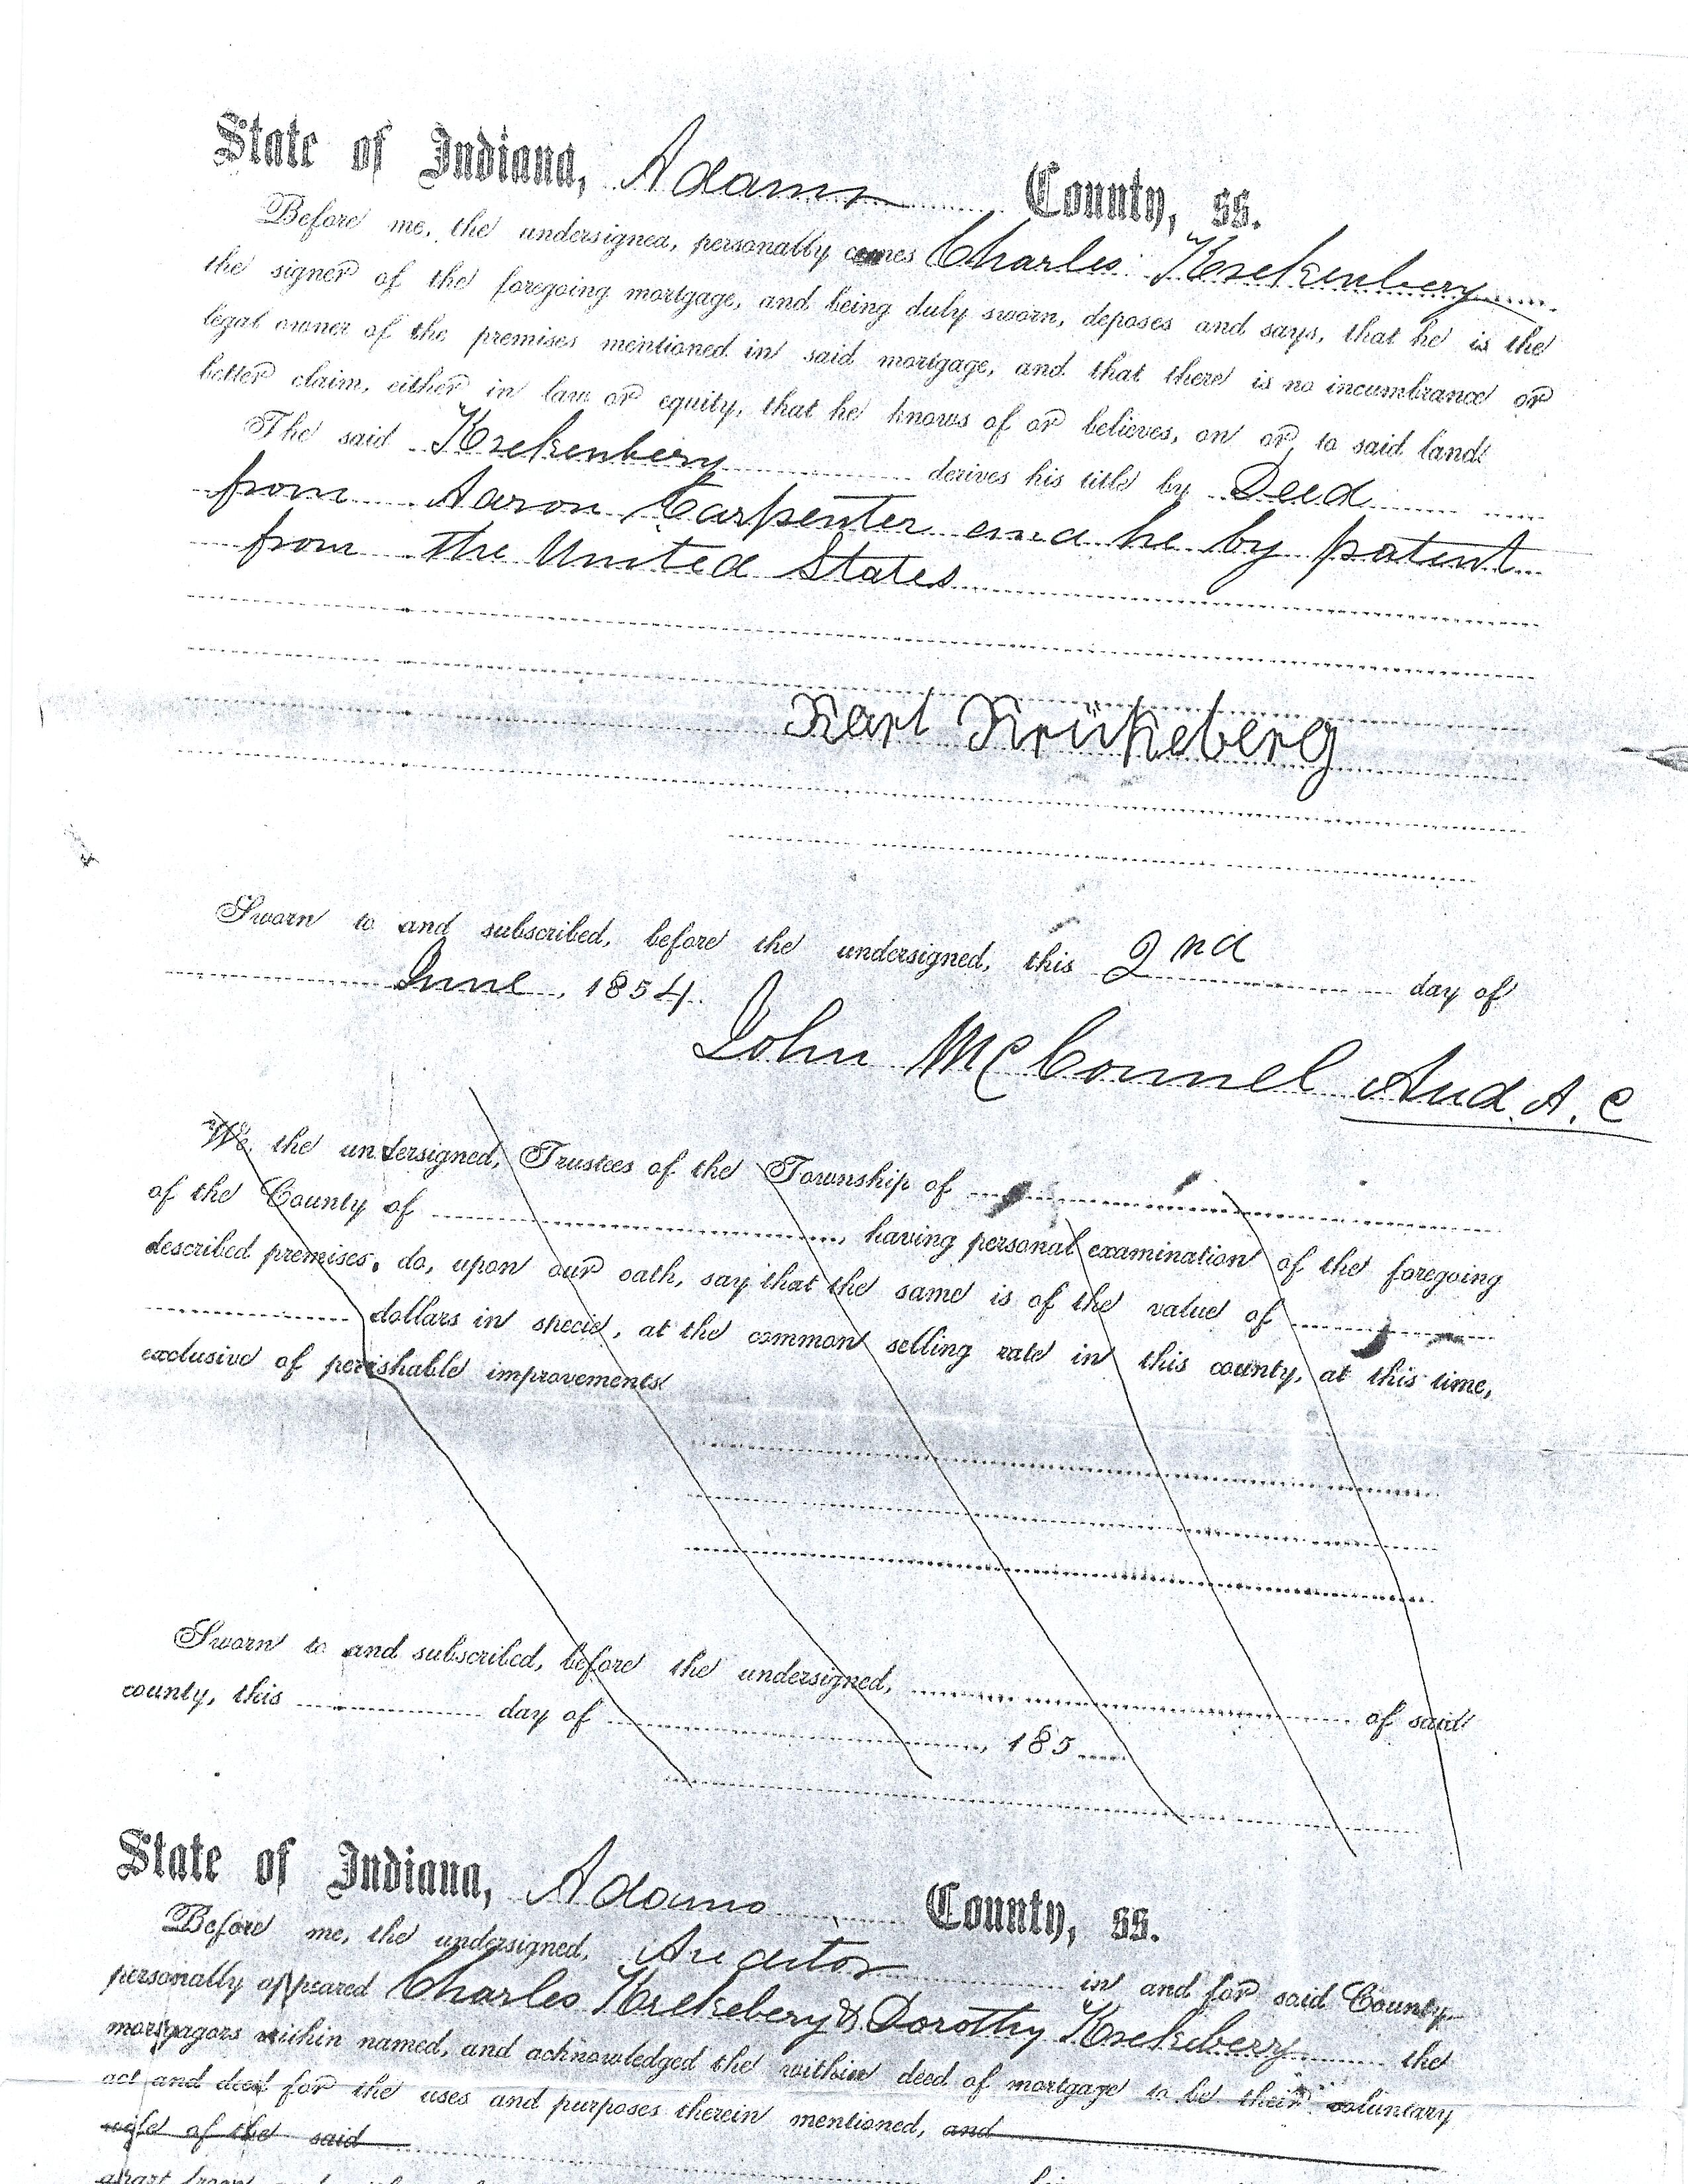 State of Indiana, Adams County, ss.
Before me, the undersigned, personally comes Charles Krekenbery
the signer of the foregoing mortgage, and being duly sworn, deposes and says, that he is the
legal owner of the premises mentioned in said mortgage, and that there is no incumbrance or
better claim, either in law or equity, that he knows of or believes, on or to said land
The said Krekenbery derives his title by Deed
from Aaron Carpenter and he by patent
from the United States
Karl Krükeberg
Sworn to and subscribed, before the undersigned, this 2nd day of
June, 1854.
John McConnel Aud. A. C
We, the undersigned, Trustees of the Township of
of the County of , having personal examination of the foregoing
described premises, do, upon our oath, say that the same is of the value of
dollars in specie, at the common selling rate in this county, at this time,
exclusive of perishable improvements
Sworn to and subscribed, before the undersigned, of said
county, this day of , 185
State of Indiana, Adams County, ss.
Before me, the undersigned, Auditor in and for said County
personally appeared Charles Krekebery & Dorothy Krekebery the
mortgagors within named, and acknowledged the within deed of mortgage to be their voluntary
act and deed for the uses and purposes therein mentioned, and
wife of the said
apart from